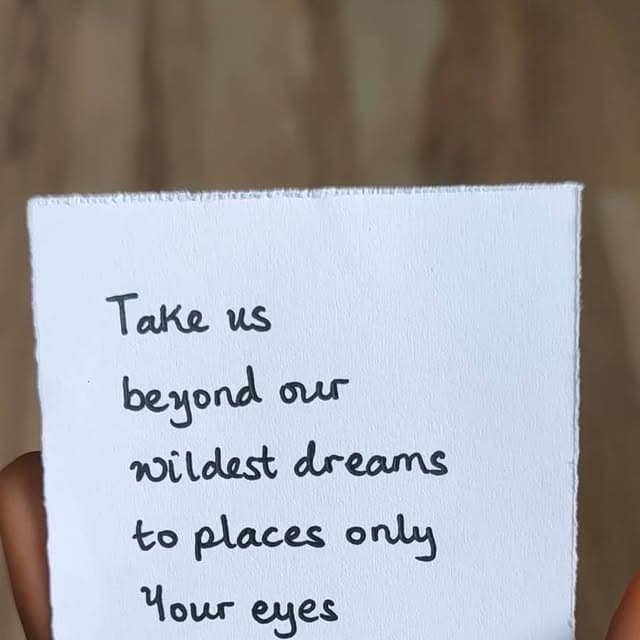 Take us
beyond our
wildest dreams
to places only
Your eyes